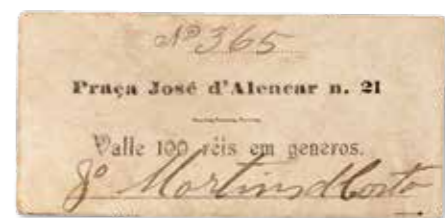 Nº 365
Praça José d'Alencar n. 21
Valle 100 réis em generos.
Jº Martins d Costa